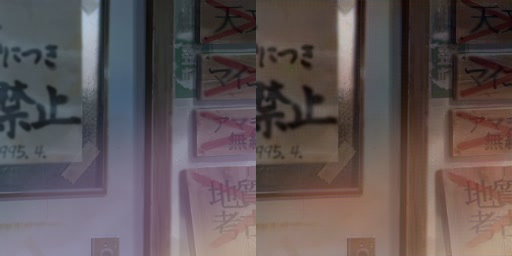 につき
禁止
995.4.
天
マイコ
アマ
無線
地質
考古
につき
禁止
995.4.
天
マイコ
アマ
無線
地質
考古